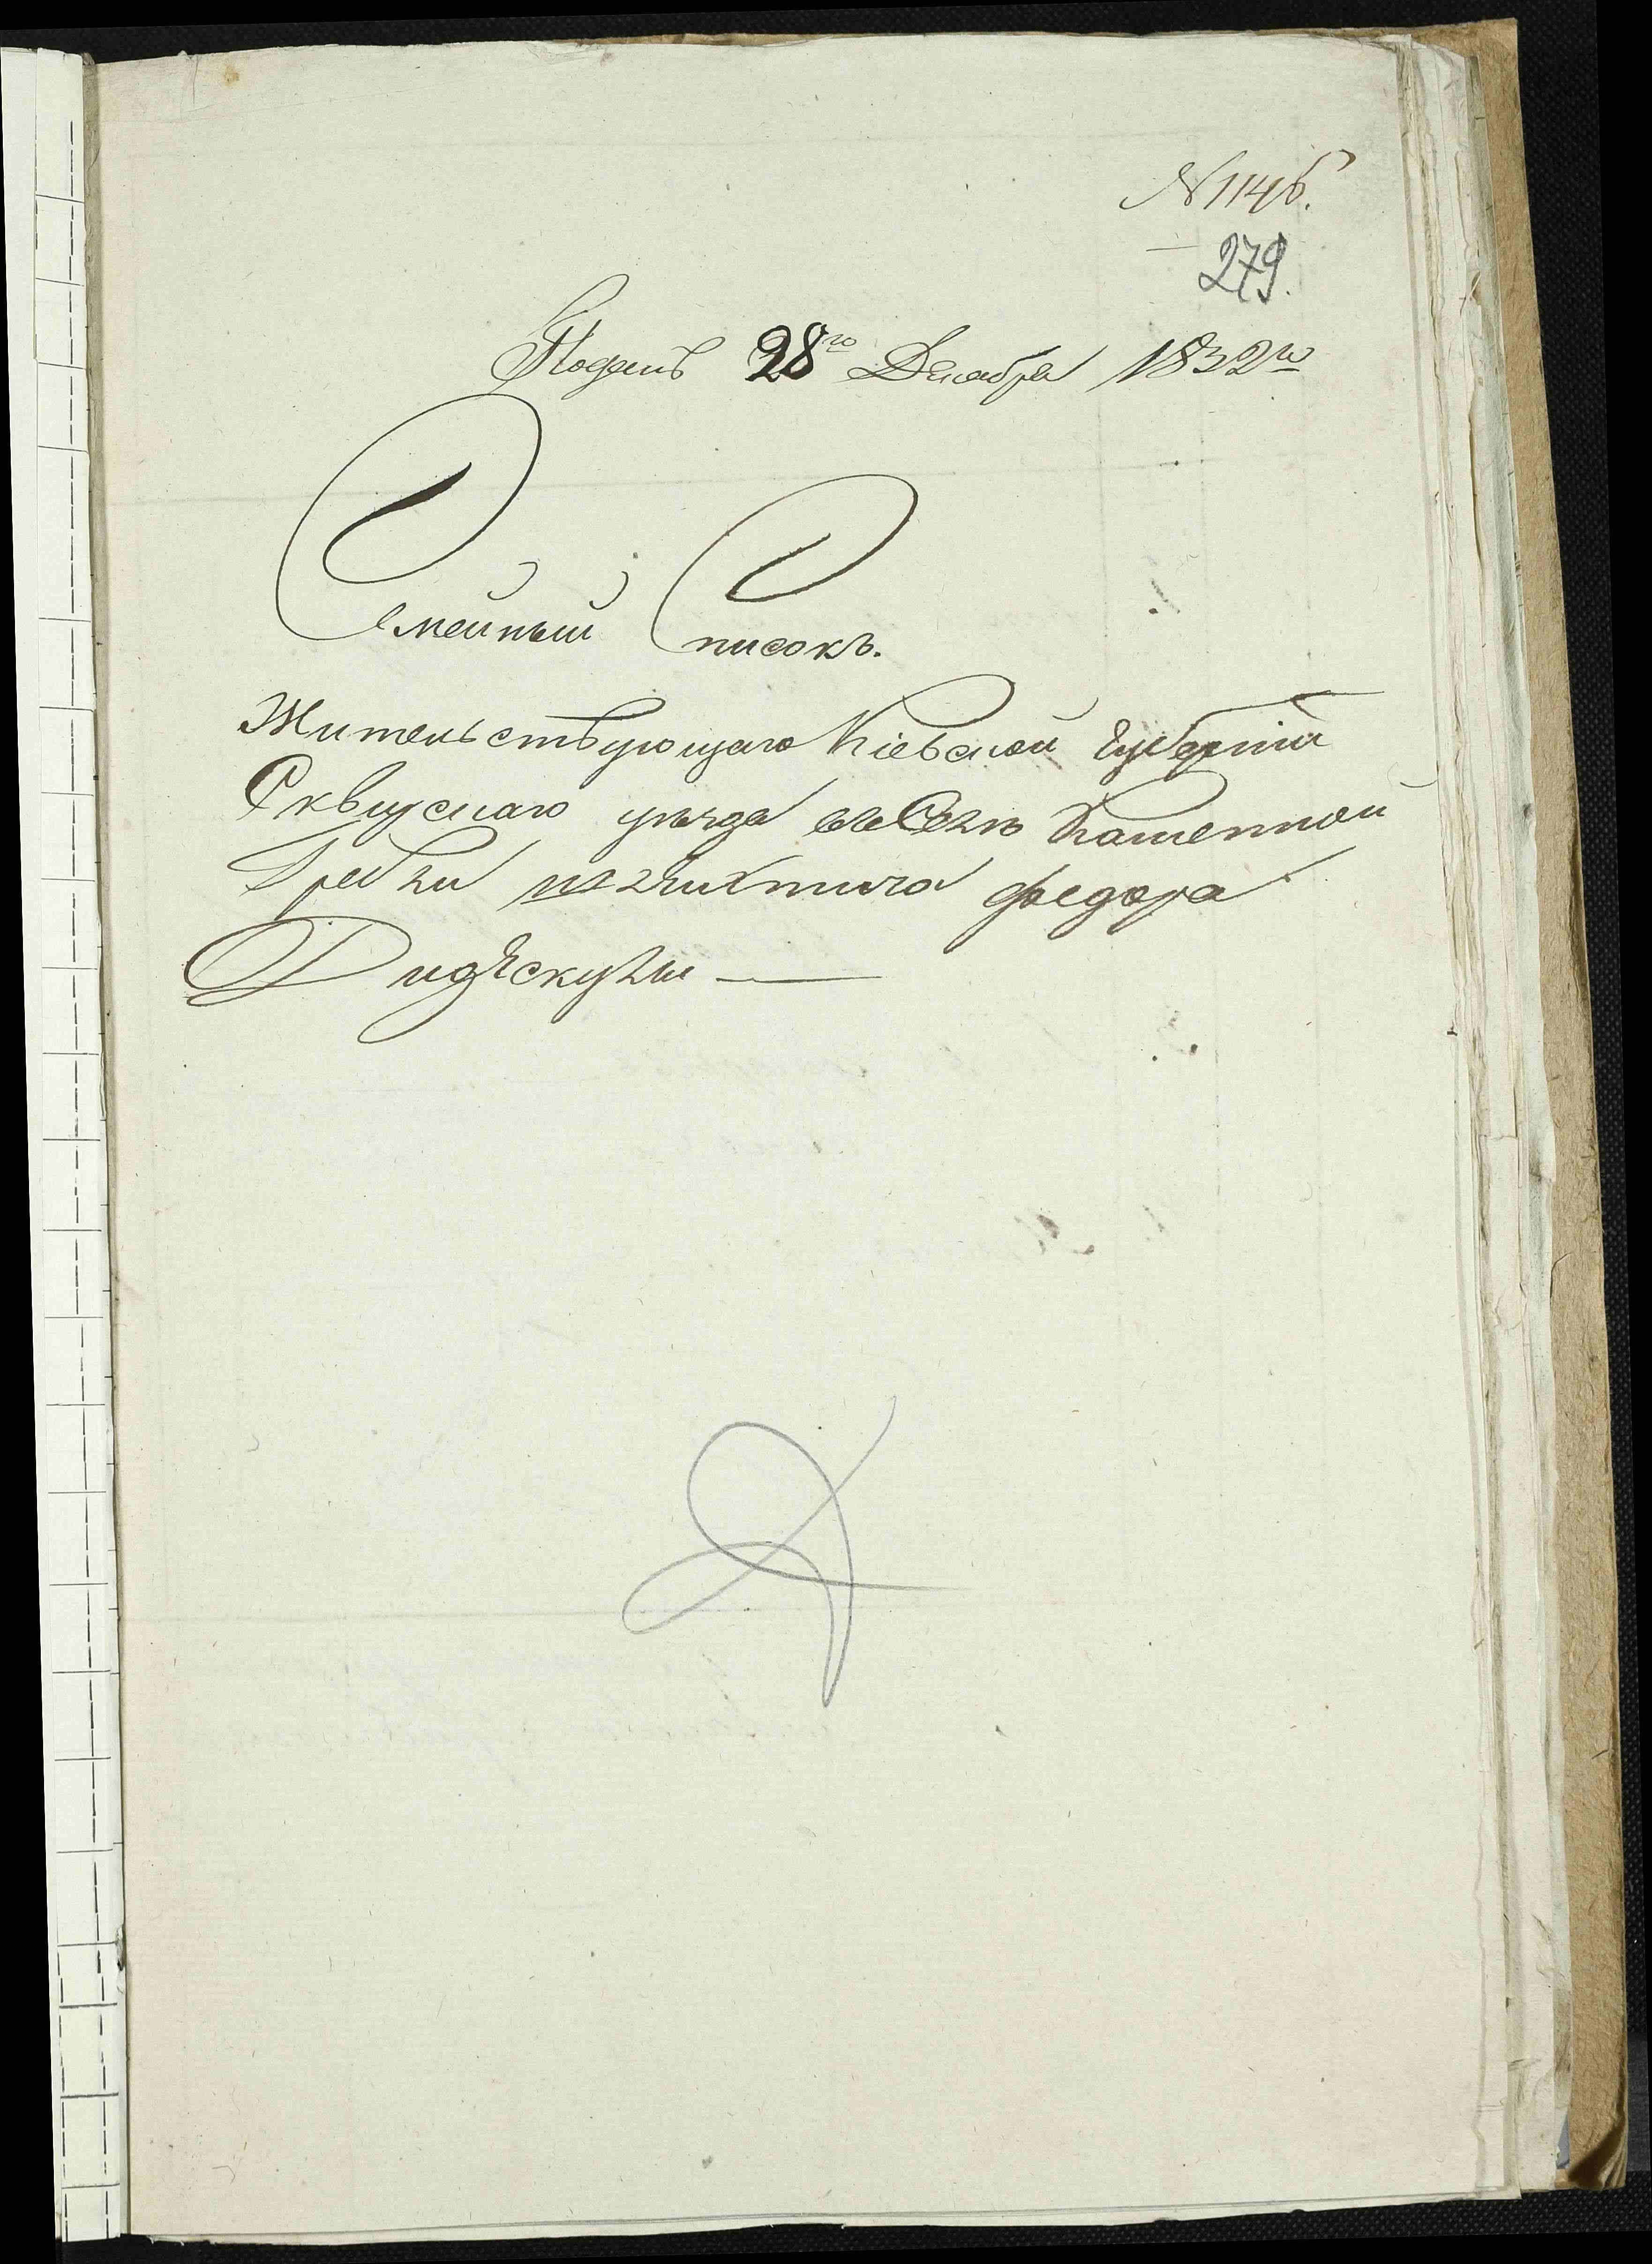 N 1146.
279.
Поданъ 28го Декабря 1832го
Семейный Списокъ.
Жительствующаго Кіевской губерніи
Сквирскаго уѣзда въ Селѣ Каменной
Гребли шляхтича Федора